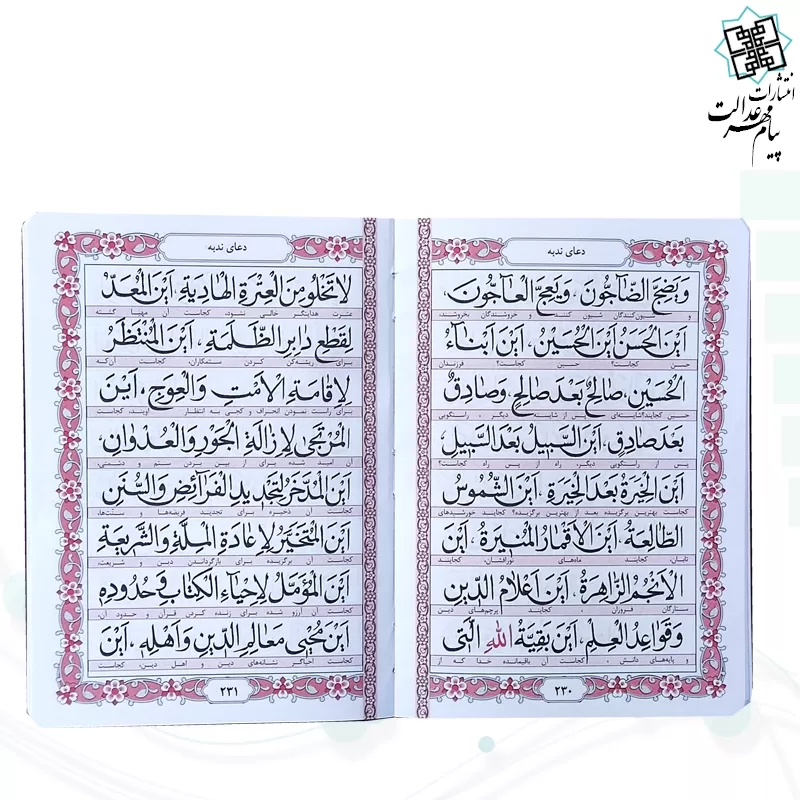 انتشارات
پیام مهر عدالت
دعای ندبه
وَيَضِجَّ الضّاجُّونَ، وَيَعِجَّ الْعاجُّونَ،
و شیون‌کنندگان شیون کنند و خروشندگان بخروشند،
اَيْنَ الْحَسَنُ اَيْنَ الْحُسَيْنُ، اَيْنَ اَبْناۤءُ
حسن کجاست؟ حسین کجاست؟ فرزندان
الْحُسَيْنِ، صالِحٌ بَعْدَ صالِحٍ، وَصادِقٌ
حسین کجایند؟ شایسته‌ای پس از شایسته‌ای دیگر، راستگویی
بَعْدَ صادِقٍ، اَيْنَ السَّبيلُ بَعْدَ السَّبيلِ،
پس از راستگویی دیگر، راه از پس راه کجاست؟
اَيْنَ الْخِيَرَةُ بَعْدَ الْخِيَرَةِ، اَيْنَ الشُّمُوسُ
کجاست بهترین برگزیده بعد از بهترین برگزیده؟ کجایند خورشیدهای
الطّالِعَةُ، اَيْنَ الْاَقْمارُ الْمُنيرَةُ، اَيْنَ
تابان، کجایند ماه‌های نورافشان، کجایند
الْاَنْجُمُ الزّاهِرَةُ، اَيْنَ اَعْلامُ الدّينِ
ستارگان فروزان، کجایند پرچم‌های دین
وَقَواعِدُ الْعِلْمِ، اَيْنَ بَقِيَّةُ اللهِ الَّتى
و پایه‌های دانش، کجاست آن باقیمانده خدا که از
۲۳۰
دعای ندبه
لا تَخْلُو مِنَ الْعِتْرَةِ الْهادِيَةِ، اَيْنَ الْمُعَدُّ
عترت هدایتگر خالی نشود، کجاست آن مهیا گشته
لِقَطْعِ دابِرِ الظَّلَمَةِ، اَيْنَ الْمُنْتَظَرُ
برای ریشه‌کن کردن ستمکاران، کجاست آن‌که
لِاِقامَةِ الْاَمْتِ وَالْعِوَجِ، اَيْنَ
برای راست نمودن انحراف و کجی به انتظار اویند، کجاست
الْمُرْتَجى لِاِزالَةِ الْجَوْرِ وَالْعُدْوانِ،
آن امید شده برای از بین بردن ستم و دشمنی،
اَيْنَ الْمُدَّخَرُ لِتَجْديدِ الْفَراۤئِضِ وَالسُّنَنِ
کجاست آن ذخیره برای تجدید فریضه‌ها و سنّت‌ها،
اَيْنَ الْمُتَخَيَّرُ لِاِعادَةِ الْمِلَّةِ وَالشَّريعَةِ
کجاست آن برگزیده برای بازگرداندن دین و شریعت،
اَيْنَ الْمُؤَمَّلُ لِاِحْياۤءِ الْكِتابِ وَحُدُودِهِ
کجاست آن آرزو شده برای زنده کردن قرآن و حدود آن،
اَيْنَ مُحْيى مَعالِمِ الدّينِ وَاَهْلِهِ، اَيْنَ
کجاست احیاگر نشانه‌های دین و اهل دین، کجاست
۲۳۱